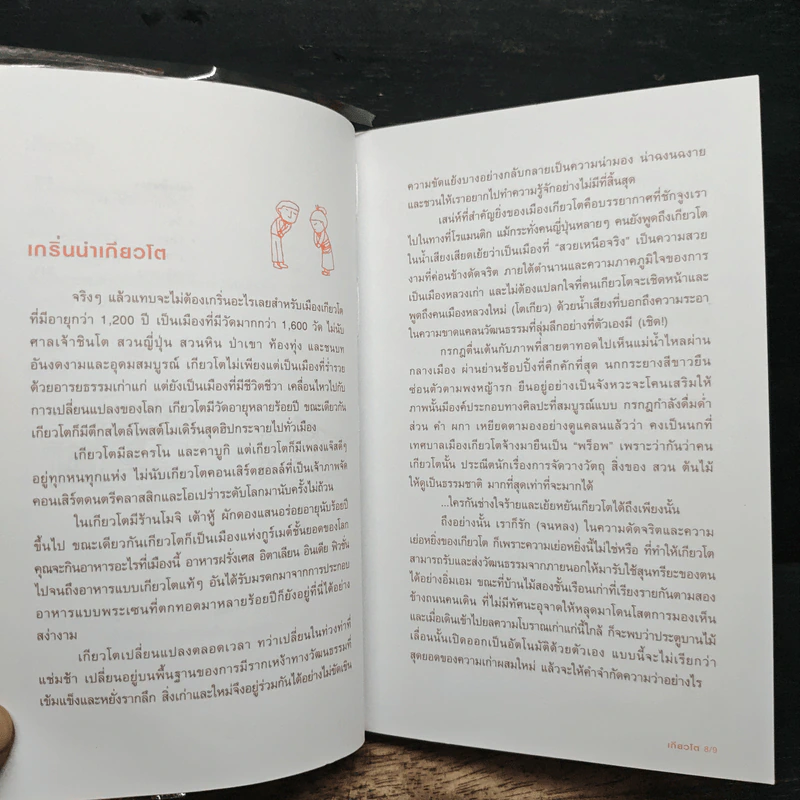 เกริ่นนำเกียวโต
จริงๆ แล้วแทบจะไม่ต้องเกริ่นอะไรเลยสำหรับเมืองเกียวโต
ที่มีอายุกว่า 1,200 ปี เป็นเมืองที่มีวัดมากกว่า 1,600 วัด ไม่นับ
ศาลเจ้าชินโต สวนญี่ปุ่น สวนหิน ป่าเขา ท้องทุ่ง และชนบท
อันงดงามและอุดมสมบูรณ์ เกียวโตไม่เพียงแต่เป็นเมืองที่ร่ำรวย
ด้วยอารยธรรมเก่าแก่ แต่ยังเป็นเมืองที่มีชีวิตชีวา เคลื่อนไหวไปกับ
การเปลี่ยนแปลงของโลก เกียวโตมีวัดอายุหลายร้อยปี ขณะเดียวกัน
เกียวโตก็มีตึกสไตล์โพสต์โมเดิร์นสุดฮิปกระจายไปทั่วเมือง
เกียวโตมีละครโน และคาบูกิ แต่เกียวโตก็มีเพลงแจ๊สดีๆ
อยู่ทุกหนทุกแห่ง ไม่นับเกียวโตคอนเสิร์ตฮอลล์ที่เป็นเจ้าภาพจัด
คอนเสิร์ตดนตรีคลาสสิกและโอเปร่าระดับโลกมานับครั้งไม่ถ้วน
ในเกียวโตมีร้านโมจิ เต้าหู้ ผักดองแสนอร่อยอายุนับร้อยปี
ขึ้นไป ขณะเดียวกันเกียวโตก็เป็นเมืองแห่งกูร์เมต์ชั้นยอดของโลก
คุณจะกินอาหารอะไรที่เมืองนี้ อาหารฝรั่งเศส อิตาเลียน อินเดีย ฟิวชั่น
ไปจนถึงอาหารแบบเกียวโตแท้ๆ อันได้รับมรดกมาจากการประกอบ
อาหารแบบพระเซนที่ตกทอดมาหลายร้อยปีก็ยังอยู่ที่นี่ได้อย่าง
สง่างาม
เกียวโตเปลี่ยนแปลงตลอดเวลา ทว่าเปลี่ยนในท่วงท่าที่
แช่มช้า เปลี่ยนอยู่บนพื้นฐานของการมีรากเหง้าทางวัฒนธรรมที่
เข้มแข็งและหยั่งรากลึก สิ่งเก่าและใหม่จึงอยู่ร่วมกันได้อย่างไม่ขัดเขิน
ความขัดแย้งบางอย่างกลับกลายเป็นความน่ามอง น่าฉงนฉงาย
และชวนให้เราอยากไปทำความรู้จักอย่างไม่มีที่สิ้นสุด
เสน่ห์ที่สำคัญยิ่งของเมืองเกียวโตคือบรรยากาศที่ชักจูงเรา
ไปในทางที่โรแมนติก แม้กระทั่งคนญี่ปุ่นหลายๆ คนยังพูดถึงเกียวโต
ในน้ำเสียงเสียดเย้ยว่าเป็นเมืองที่ "สวยเหนือจริง" เป็นความสวย
งามที่ค่อนข้างดัดจริต ภายใต้ตำนานและความภาคภูมิใจของการ
เป็นเมืองหลวงเก่า และไม่ต้องแปลกใจที่คนเกียวโตจะเชิดหน้าและ
พูดถึงคนเมืองหลวงใหม่ (โตเกียว) ด้วยน้ำเสียงที่บอกถึงความระอา
ในความขาดแคลนวัฒนธรรมที่ลุ่มลึกอย่างที่ตัวเองมี (เชิด!)
กรกฎตื่นเต้นกับภาพที่สายตาทอดไปเห็นแม่น้ำไหลผ่าน
กลางเมือง ผ่านย่านช้อปปิ้งที่คึกคักที่สุด นกกระยางสีขาวยืน
ซ่อนตัวตามพงหญ้ารก ยืนอยู่อย่างเป็นจังหวะจะโคนเสริมให้
ภาพนั้นมีองค์ประกอบทางศิลปะที่สมบูรณ์แบบ กรกฎกำลังดื่มด่ำ
ส่วน คำ ผกา เหยียดตามองอย่างดูแคลนแล้วว่า คงเป็นนกที่
เทศบาลเมืองเกียวโตจ้างมายืนเป็น "พร็อพ" เพราะว่ากันว่าคน
เกียวโตนั้น ประณีตนักเรื่องการจัดวางวัตถุ สิ่งของ สวน ต้นไม้
ให้ดูเป็นธรรมชาติ มากที่สุดเท่าที่จะมากได้
...ใครกันช่างใจร้ายและเย้ยหยันเกียวโตได้ถึงเพียงนั้น
ถึงอย่างนั้น เราก็รัก (จนหลง) ในความดัดจริตและความ
เย่อหยิ่งของเกียวโต ก็เพราะความเย่อหยิ่งนี้ไม่ใช่หรือ ที่ทำให้เกียวโต
สามารถรับและส่งวัฒนธรรมจากภายนอกให้มารับใช้สุนทรียะของตน
ได้อย่างอิ่มเอม ขณะที่บ้านไม้สองชั้นเรือนเก่าที่เรียงรายกันตามสอง
ข้างถนนคนเดิน ที่ไม่มีทัศนะอุจาดให้หลุดมาโดนโสตการมองเห็น
และเมื่อเดินเข้าไปยลความโบราณเก่าแก่นี้ใกล้ ก็จะพบว่าประตูบานไม้
เลื่อนนั้นเปิดออกเป็นอัตโนมัติด้วยตัวเอง แบบนี้จะไม่เรียกว่า
สุดยอดของความเก่าผสมใหม่ แล้วจะให้คำจำกัดความว่าอย่างไร
เกียวโต 8/9